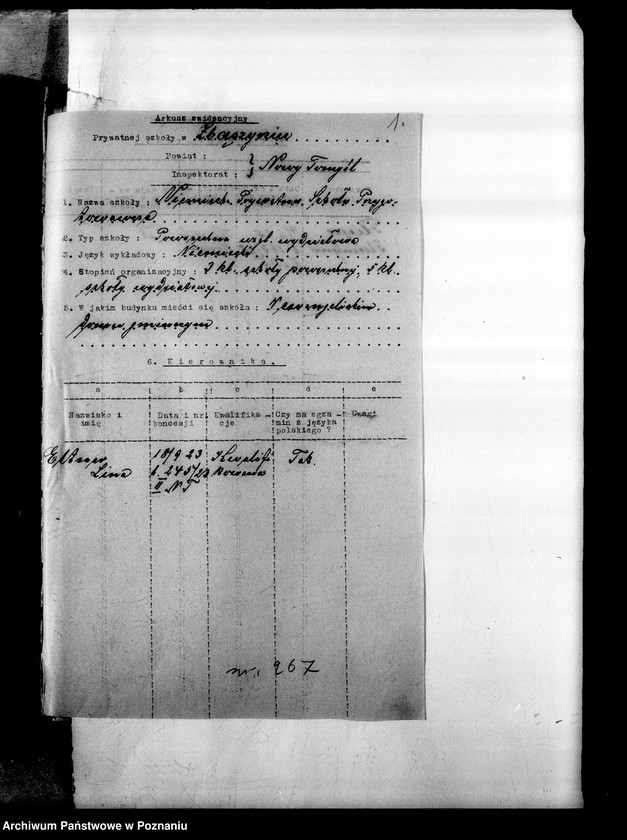 1.
Arkusz ewidencyjny
Prywatnej szkoły w Zbąszyniu
Powiat :
Inspektorat : } Nowy Tomyśl
1. Nazwa szkoły : Niemiecka Prywatna Szkoła
2. Typ szkoły : Powszechna wydziałowa
3. Język wykładowy : Niemiecki
4. Stopień organizacyjny : kl. szkoły powszechnej, 5 kl.
szkoły wydziałowej
5. W jakim budynku mieści się szkoła : W ewangelickim
domu gminnym
6. Kierownika.
a b c d e
Nazwisko i imię
Data i nr koncesji
Kwalifika-cje
Czy ma egza-min z języka polskiego ?
Uwagi
Lina
18/9 23
II N T
Kwalifi
kowana
Tak.
nr. 267
Archiwum Państwowe w Poznaniu